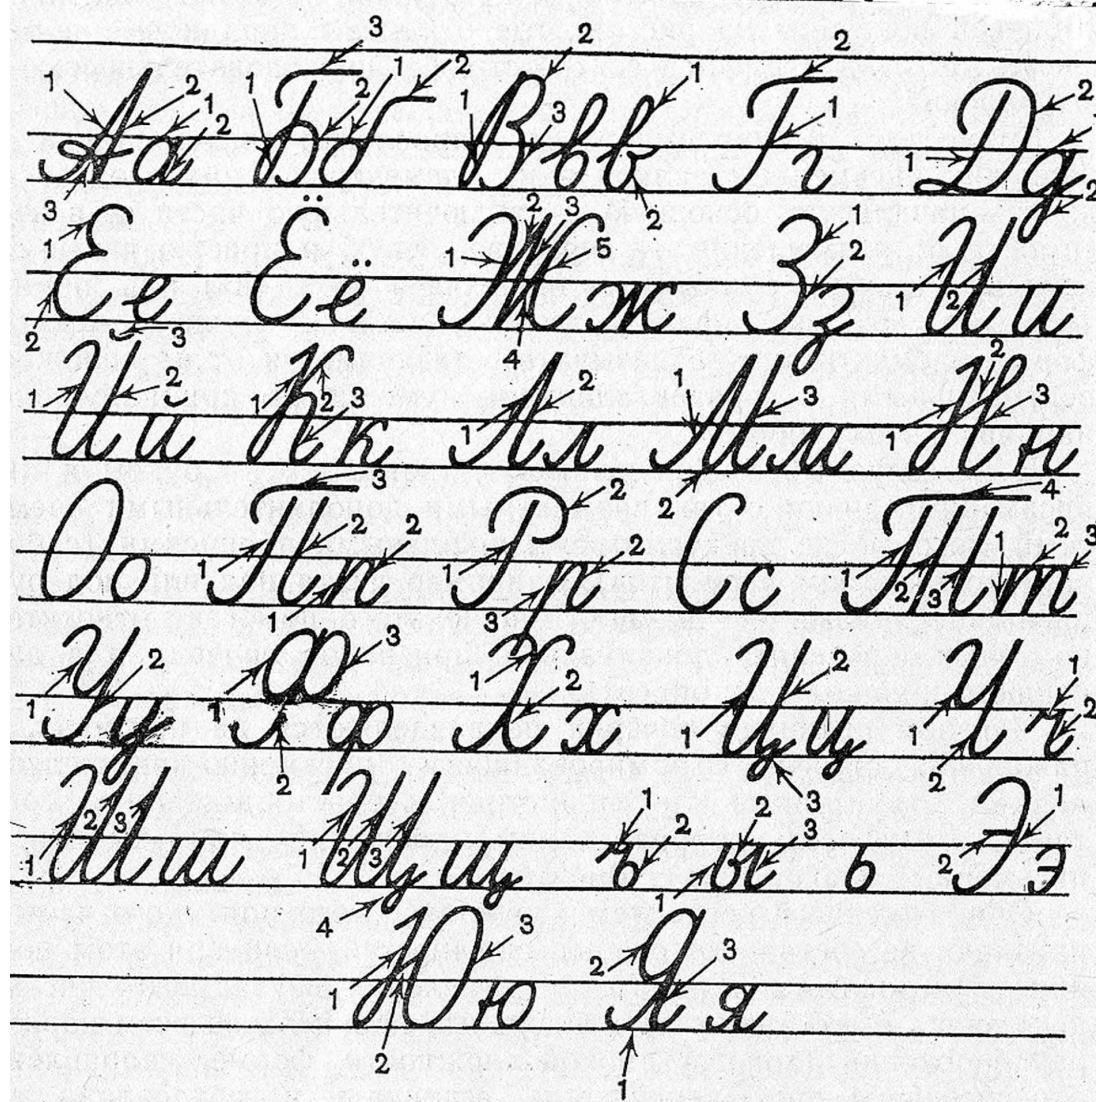 Аа Бб Ввв Гг Дд
Ее Ёё Жж Зз Ии
Йй Кк Лл Мм Нн
Оо Пп Рр Сс Тт
Уу Фф Хх Цц Чч
Шш Щщ ъ ы ь Ээ
Юю Яя